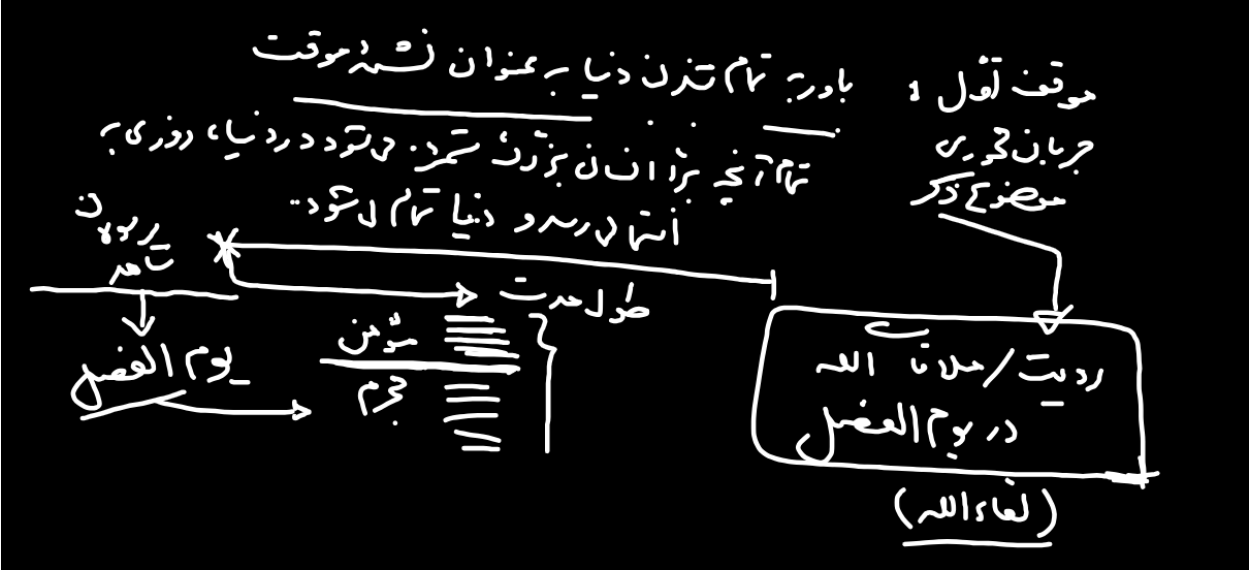 موقف اول :
جریان محوری
موضوع ذکر
باور به تمام شدن دنیا به عنوان نشئهٔ موقت
تمام آنچه برای انسان بزرگ شمرده می‌شود در دنیا، روزی به
انتها می‌رسد و دنیا تمام می‌شود..
شاهد
طول مدت
یوم الفصل
مؤمن
مجرم
رویت/ملاقات الله
در یوم الفصل
(لقاءالله)